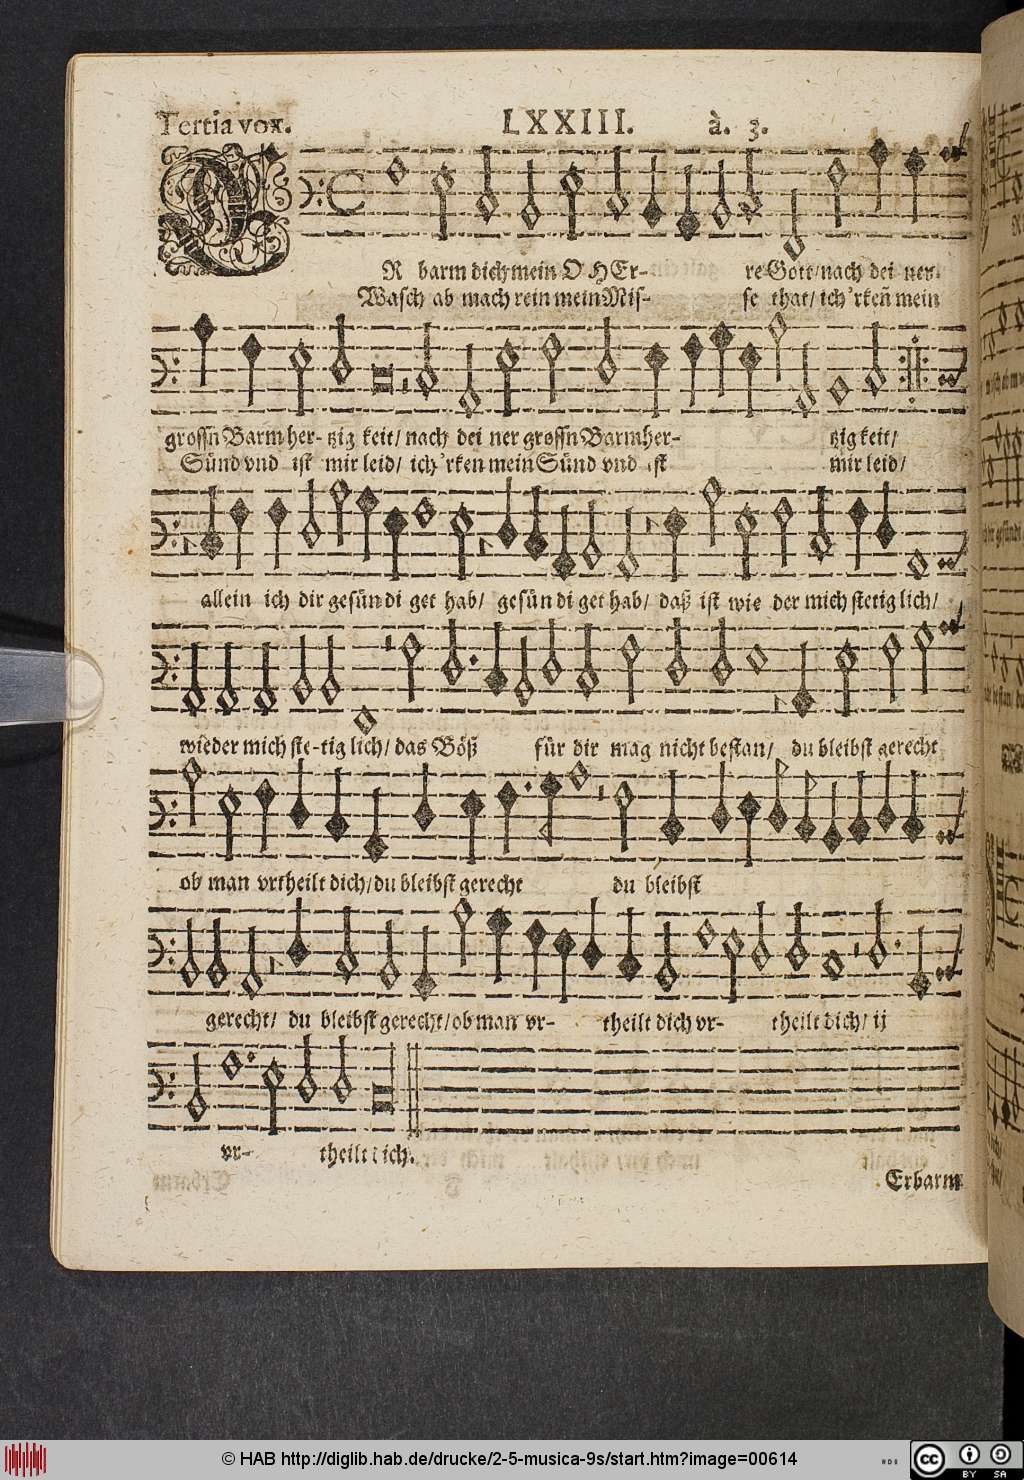 Tertia vox. LXXIII. à. 3.
ER barm dich mein O HEr- re Gott/ nach dei ner
Wasch ab mach rein mein Mis- se that/ ich 'rkeñ mein
grossn Barm her- tzig keit/ nach dei ner grossn Barmher- tzig keit/
Sünd vnd ist mir leid/ ich 'rken mein Sünd vnd ist mir leid/
allein ich dir gesün di get hab/ gesün di get hab/ daß ist wie der mich stetig lich/
wieder mich ste- tig lich/ das Böß für dir mag nicht bestan/ du bleibst gerecht
ob man vrtheilt dich/ du bleibst gerecht du bleibst
gerecht/ du bleibst gerecht/ ob man vr- theilt dich vr- theilt dich/ ij
vr- theilt dich.
Erbarm
© HAB http://diglib.hab.de/drucke/2-5-musica-9s/start.htm?image=00614
cc BY SA